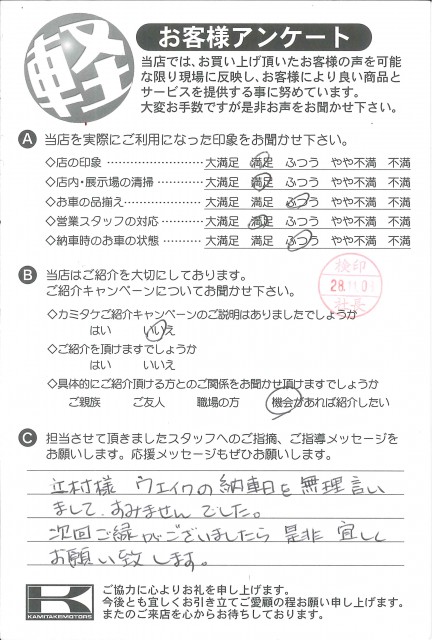 軽
お客様アンケート
当店では、お買い上げ頂いたお客様の声を可能
な限り現場に反映し、お客様により良い商品と
サービスを提供する事に努めています。
大変お手数ですが是非お声をお聞かせ下さい。
A 当店を実際にご利用になった印象をお聞かせ下さい。
◇店の印象 ………………… 大満足 満足 ふつう やや不満 不満
◇店内・展示場の清掃 ………… 大満足 満足 ふつう やや不満 不満
◇お車の品揃え ……………… 大満足 満足 ふつう やや不満 不満
◇営業スタッフの対応 ………… 大満足 満足 ふつう やや不満 不満
◇納車時のお車の状態 ………… 大満足 満足 ふつう やや不満 不満
B 当店はご紹介を大切にしております。
ご紹介キャンペーンについてお聞かせ下さい。
検印
28.11.0
社長
◇カミタケご紹介キャンペーンのご説明はありましたでしょうか
はい いいえ
◇ご紹介を頂けますでしょうか
はい いいえ
◇具体的にご紹介頂ける方とのご関係をお聞かせ頂けますでしょうか
ご親族 ご友人 職場の方 機会があれば紹介したい
C 担当させて頂きましたスタッフへのご指摘、ご指導メッセージを
お願いします。応援メッセージもぜひお願いします。
辻村様 ウェイクの納車日を無理言い
まして、すみませんでした。
次回ご縁がございましたら是非宜しく
お願い致します。
K
KAMITAKEMOTORS
ご協力に心よりお礼を申し上げます。
今後とも宜しくお引き立てご愛顧の程お願い申し上げます。
またのご来店を心からお待ちしております。